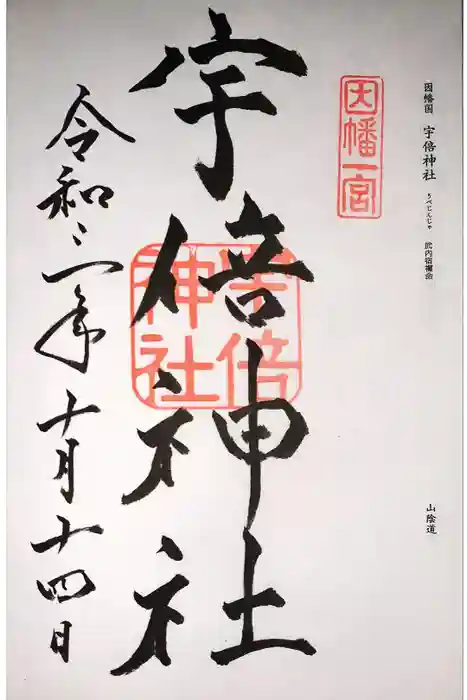 因幡国 宇倍神社 うべじんじゃ 武内宿禰命
山陰道
因幡一宮
宇倍神社
宇倍
神社
令和三年十月十四日